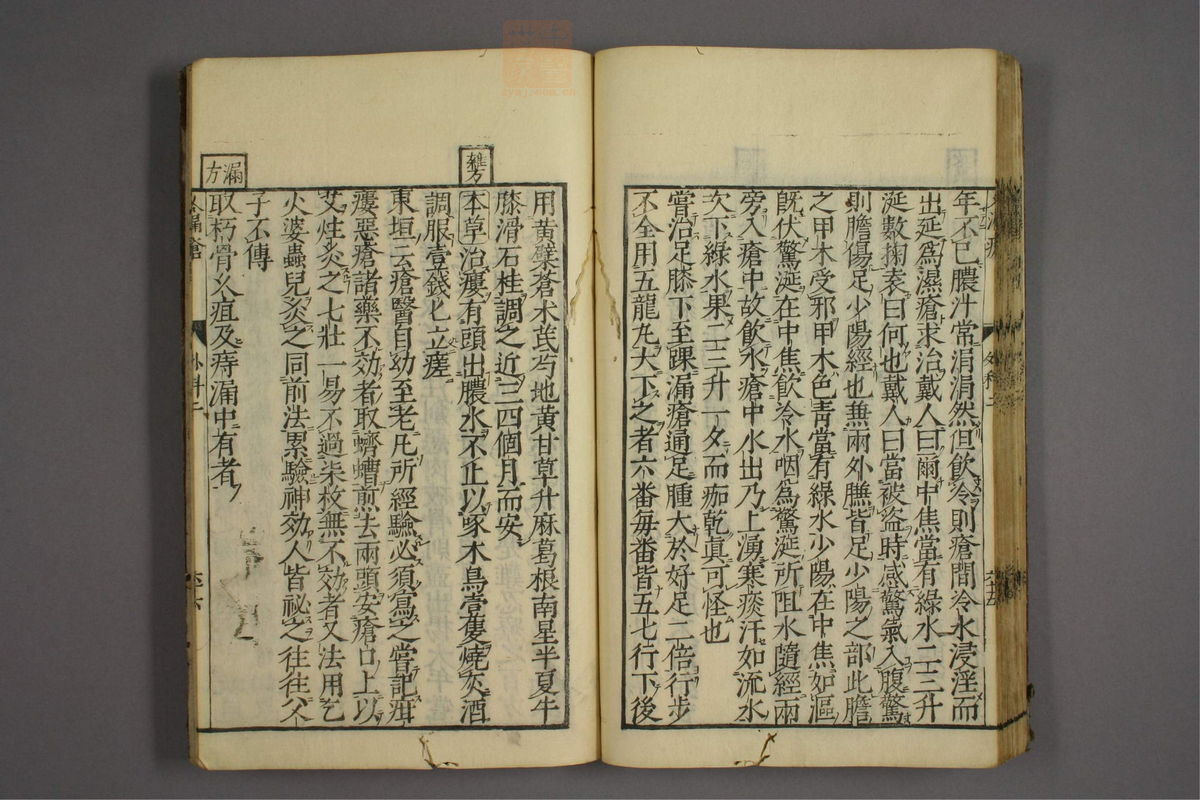 年不已膿汁常涓涓然但飲冷則瘡間冷水浸淫而
出延爲濕瘡求治戴人曰爾中焦當有綠水二三升
涎數掬袁曰何也戴人曰當被盜時感驚氣入腹驚
則膽傷足少陽經也兼兩外臁皆足少陽之部此膽
之甲木受邪甲木色青當有綠水少陽在中焦如漚
既伏驚涎在中焦飲冷水咽爲驚涎所阻水隨經兩
旁入瘡中故飲水瘡中水出乃上湧寒痰汗如流水
次下綠水果二三升一夕而痂乾眞可怪也
嘗治足膝下至踝漏瘡通足腫大於好足二倍行步
不全用五龍丸大下之者六番毎番皆五七行下後
用黃蘗蒼朮芪芍地黃甘草升麻葛根南星半夏牛
膝滑石桂調之近三四個月而安
雜方
本草治瘻有頭出膿水不止以啄木鳥壹隻燒灰酒
調服壹錢匕立瘥
東垣云瘡醫自幼至老凡所經驗必須寫之嘗記疽
瘻惡瘡諸藥不効者取蠐螬剪去兩頭安瘡口上以
艾炷灸之七壯一易不過柒枚無不効者又法用乞
火婆蟲兒灸之同前法累驗神効人皆祕之往往父
子不傳
漏方
取朽骨久疽及痔漏中有者
外科二